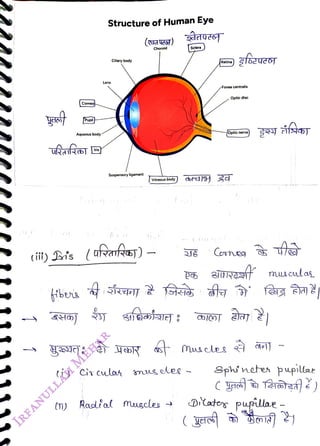 Structure of Human Eye
(रक्तपटल) श्वेतपटल
Choroid
Sclera
Ciliary body
Retina दृष्टिपटल
Lens
Fovea centralis
Optic disc
Cornea
पुतली Pupil
Optic nerve दृश्य तंत्रिका
Aqueous body
परितारिका Iris
Suspensory ligament
Vitreous body काचाभ द्रव
(iii) Iris (परितारिका) - यह Cornea के पीछे
एक अपारदर्शी muscular
fibers की संरचना है जिसके बीच में छिद्र होता है।
→ इसका रंग अधिकांशतः काला होता है।
→ मुख्यतः दो प्रकार की Muscles से बना -
(i) Circular muscles - Sphincter pupillae
( पुतली को सिकोड़ती है )
(ii) Radial muscles → Dilator pupillae -
( पुतली को फैलाती है)
IRFANULLAH MEHAR